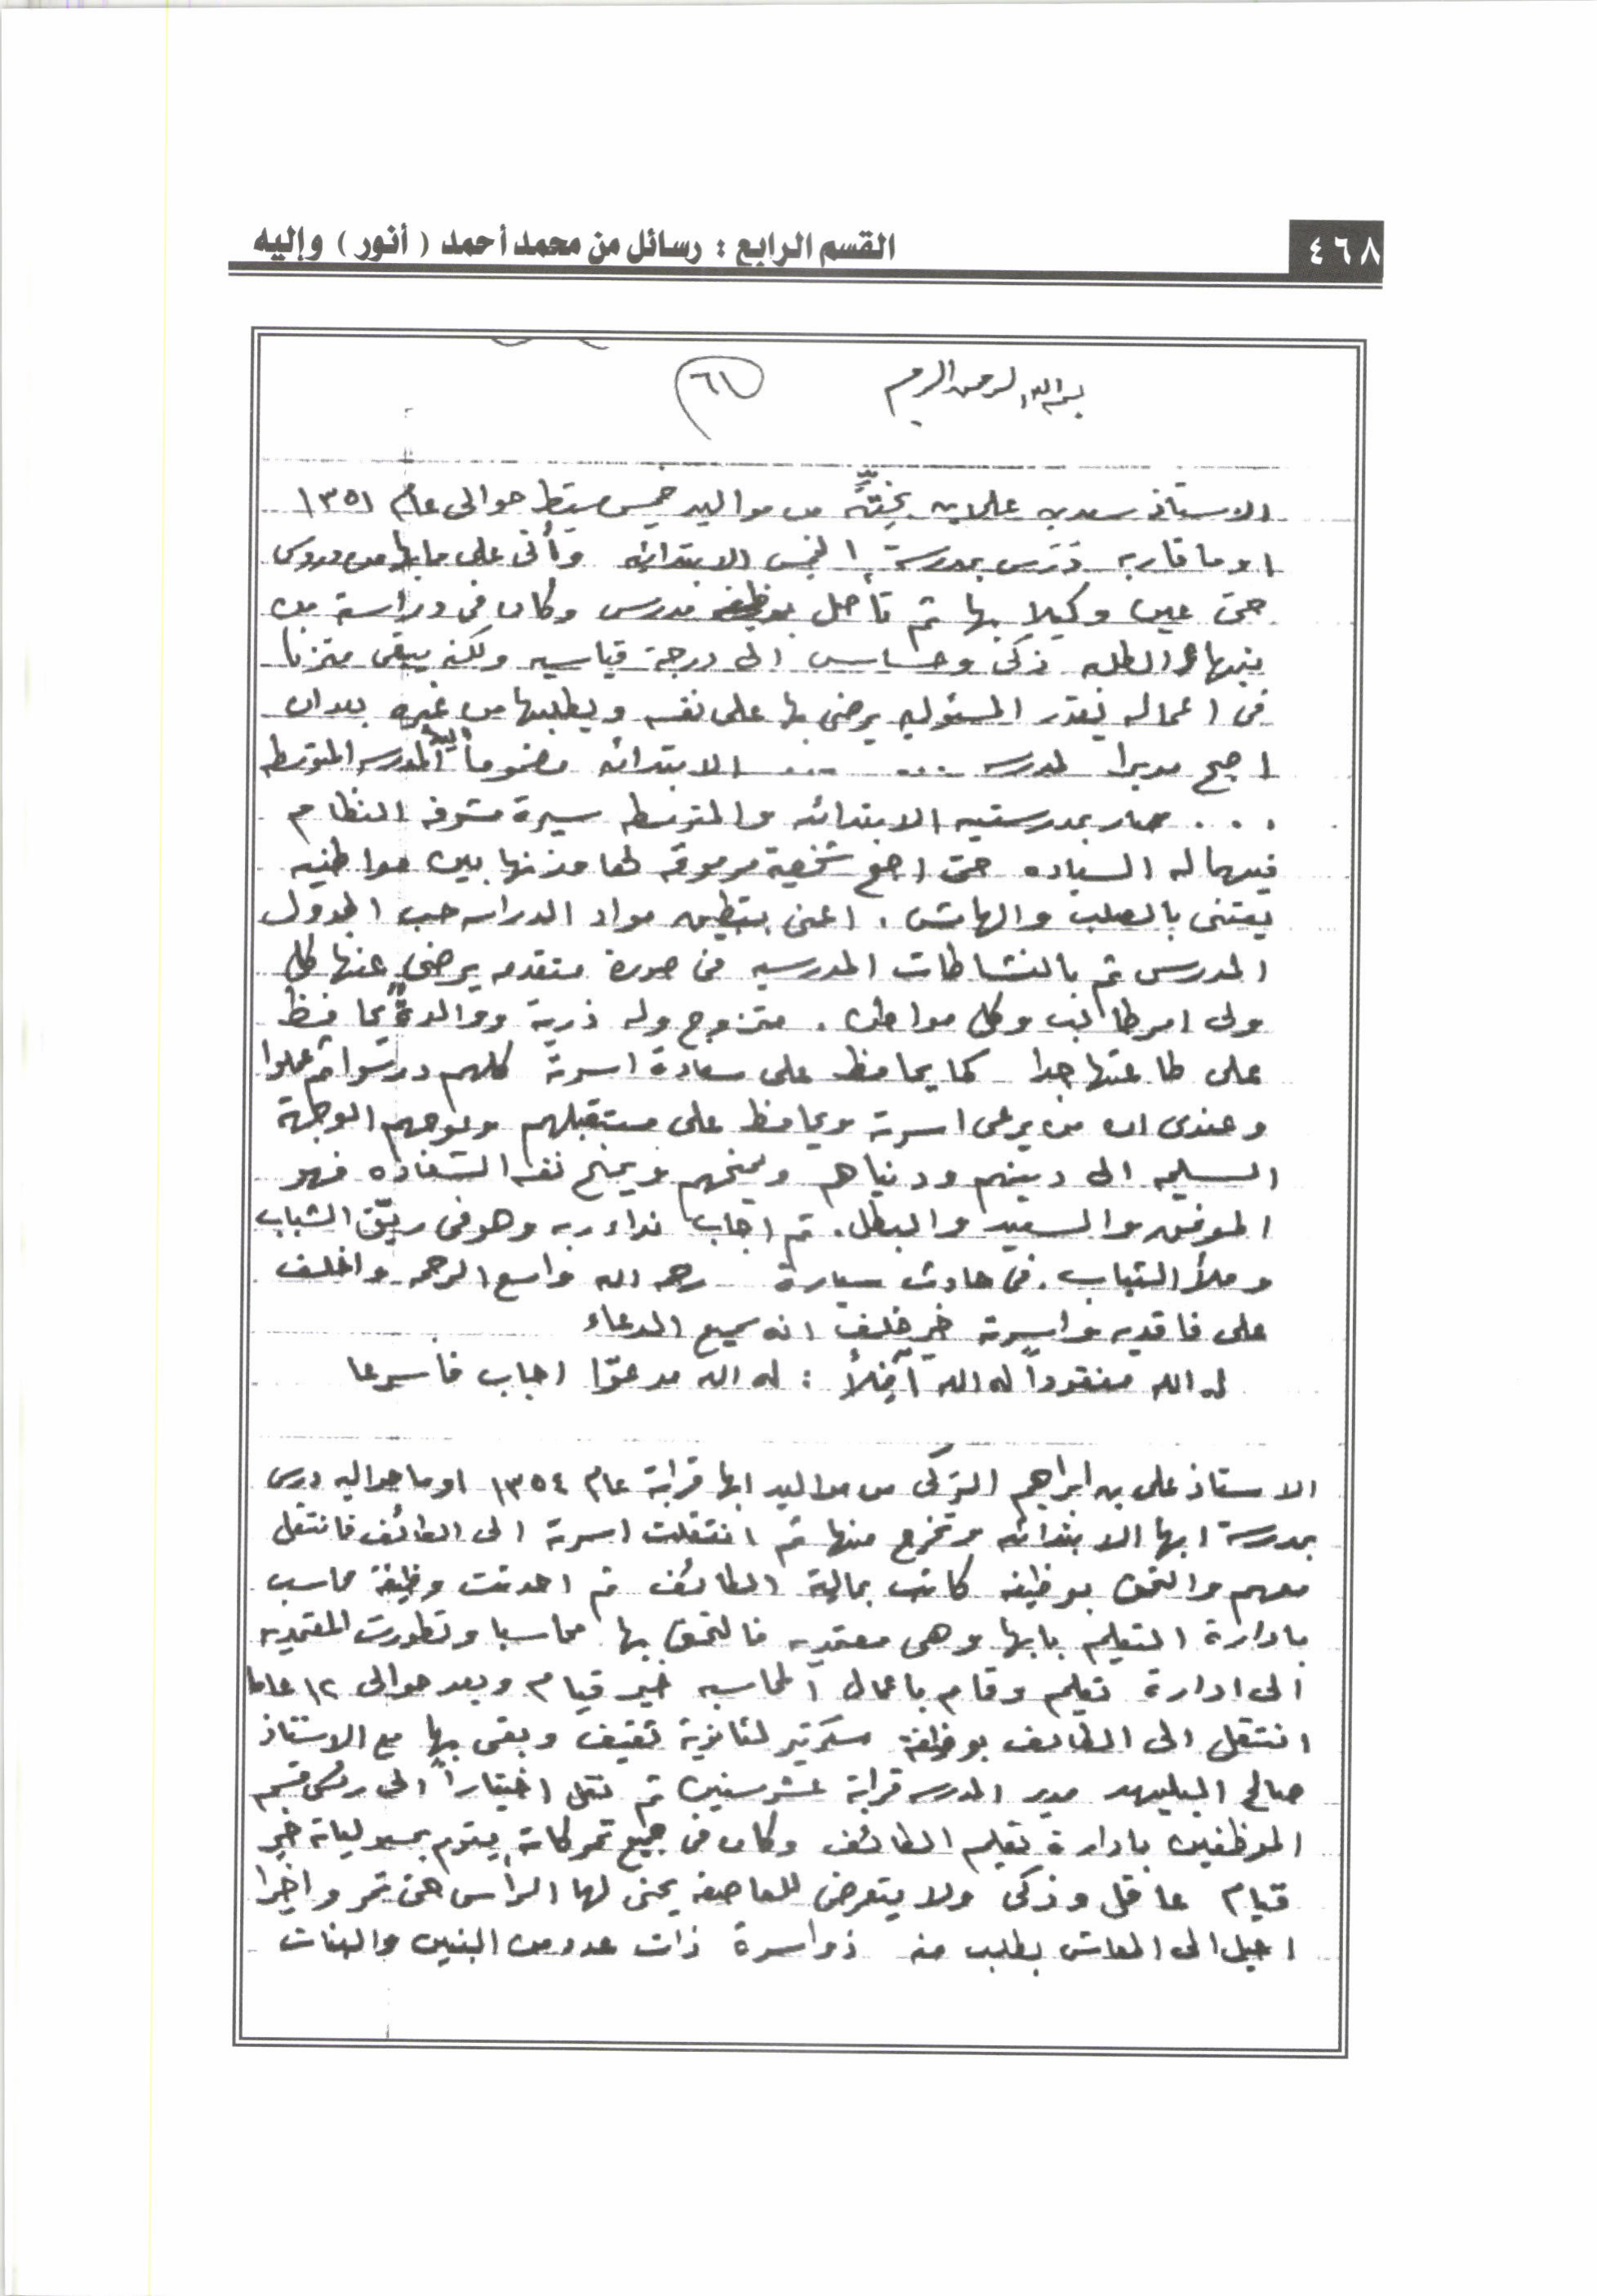 ٤٦٨
القسم الرابع : رسائل من محمد أحمد ( أنور ) وإليه
بسم الله الرحمن الرحيم
الاستاذ سعد بن من مواليد خميس مشيط حوالى عام ١٣٥١
او ما قاربه دَرَس بمدرسة الخميس الابتدائيه وتأتى على ما بها من دروس
حتى عين وكيلا بها ثم تأهل بوظيفه مدرس وكان فى دراسته من
نبهاء الطلبه ذكى وحساس الى درجة قياسيه ولكنه يبقى متزنا
فى اعماله يقدر المسئوليه يرضى بها على نفسه ويطلبها من غيره بعد ان
اصبح مديرا لمدرسه ... ... الابتدائه مضموماً اليه المدرسه المتوسطه
... سار بمدرستيه الابتدائه والمتوسطه سيرة مشرفه النظام
فيهما له السياده حتى اصبح شخصية مرموقه لها وزنها بين مواطنيه
يعتنى بالصلب والهامش . اعنى بتطبيق مواد الدراسه حسب الجدول
المدرسى ثم بالنشاطات المدرسيه فى صورة متقدمه يرضى عنها كل
ولى امر طالب وكل مواطن . متزوج وله ذرية ووالدةٌ يحافظ
على طاعتها جدا كما يحافظ على سعادة اسرته كلهم درسوا ثم عملوا
وعندى ان من يرعى اسرته ويحافظ على مستقبلهم ويوجههم الوجهة
السليمه الى دينهم ودنياهم ويمنحهم ويمنح نفسه السعاده فهو
الموفق والسعيد والبطل . ثم اجاب نداء ربه وهو فى ريّق الشباب
وملأ الشباب . فى حادث سيارة رحمه الله واسع الرحمه واخلف
على فاقديه واسرته خير خلف انه سميع الدعاء
لله الله مفقوداً لله الله آفلاً : لله الله مدعوّا اجاب فأسرعا
الاستاذ على بن ابراهيم التركى من مواليد ابها قرابة عام ١٣٥٤ او ما حواليه درس
بمدرسة ابها الابتدائه وتخرج منها ثم انتقلت اسرته الى الطائف فانتقل
معهم والتحق بوظيفه كاتب بمالية الطائف ثم احدثت وظيفة محاسب
بادارة التعليم بابها وهى معتمديه فالتحق بها محاسبا وتطورت المعتمديه
الى ادارة تعليم وقام باعمال المحاسبه خير قيام وبعد حوالى ١٢ عاما
انتقل الى الطائف بوظيفة سكرتير لثانوية ثقيف وبقى بها مع الاستاذ
صالح البليهد مدير المدرسه قرابة عشر سنين ثم نقل اختياراً الى رئيس قسم
الموظفين بادارة تعليم الطائف وكان فى جميع تحركاته يقوم بمسولياته خير
قيام عاقل وذكى ولا يتعرض للعاصفه يحنى لها الرأس حتى تمر واخيرا
احيل الى المعاش بطلب منه ذو اسرة ذات عدد من البنين والبنات